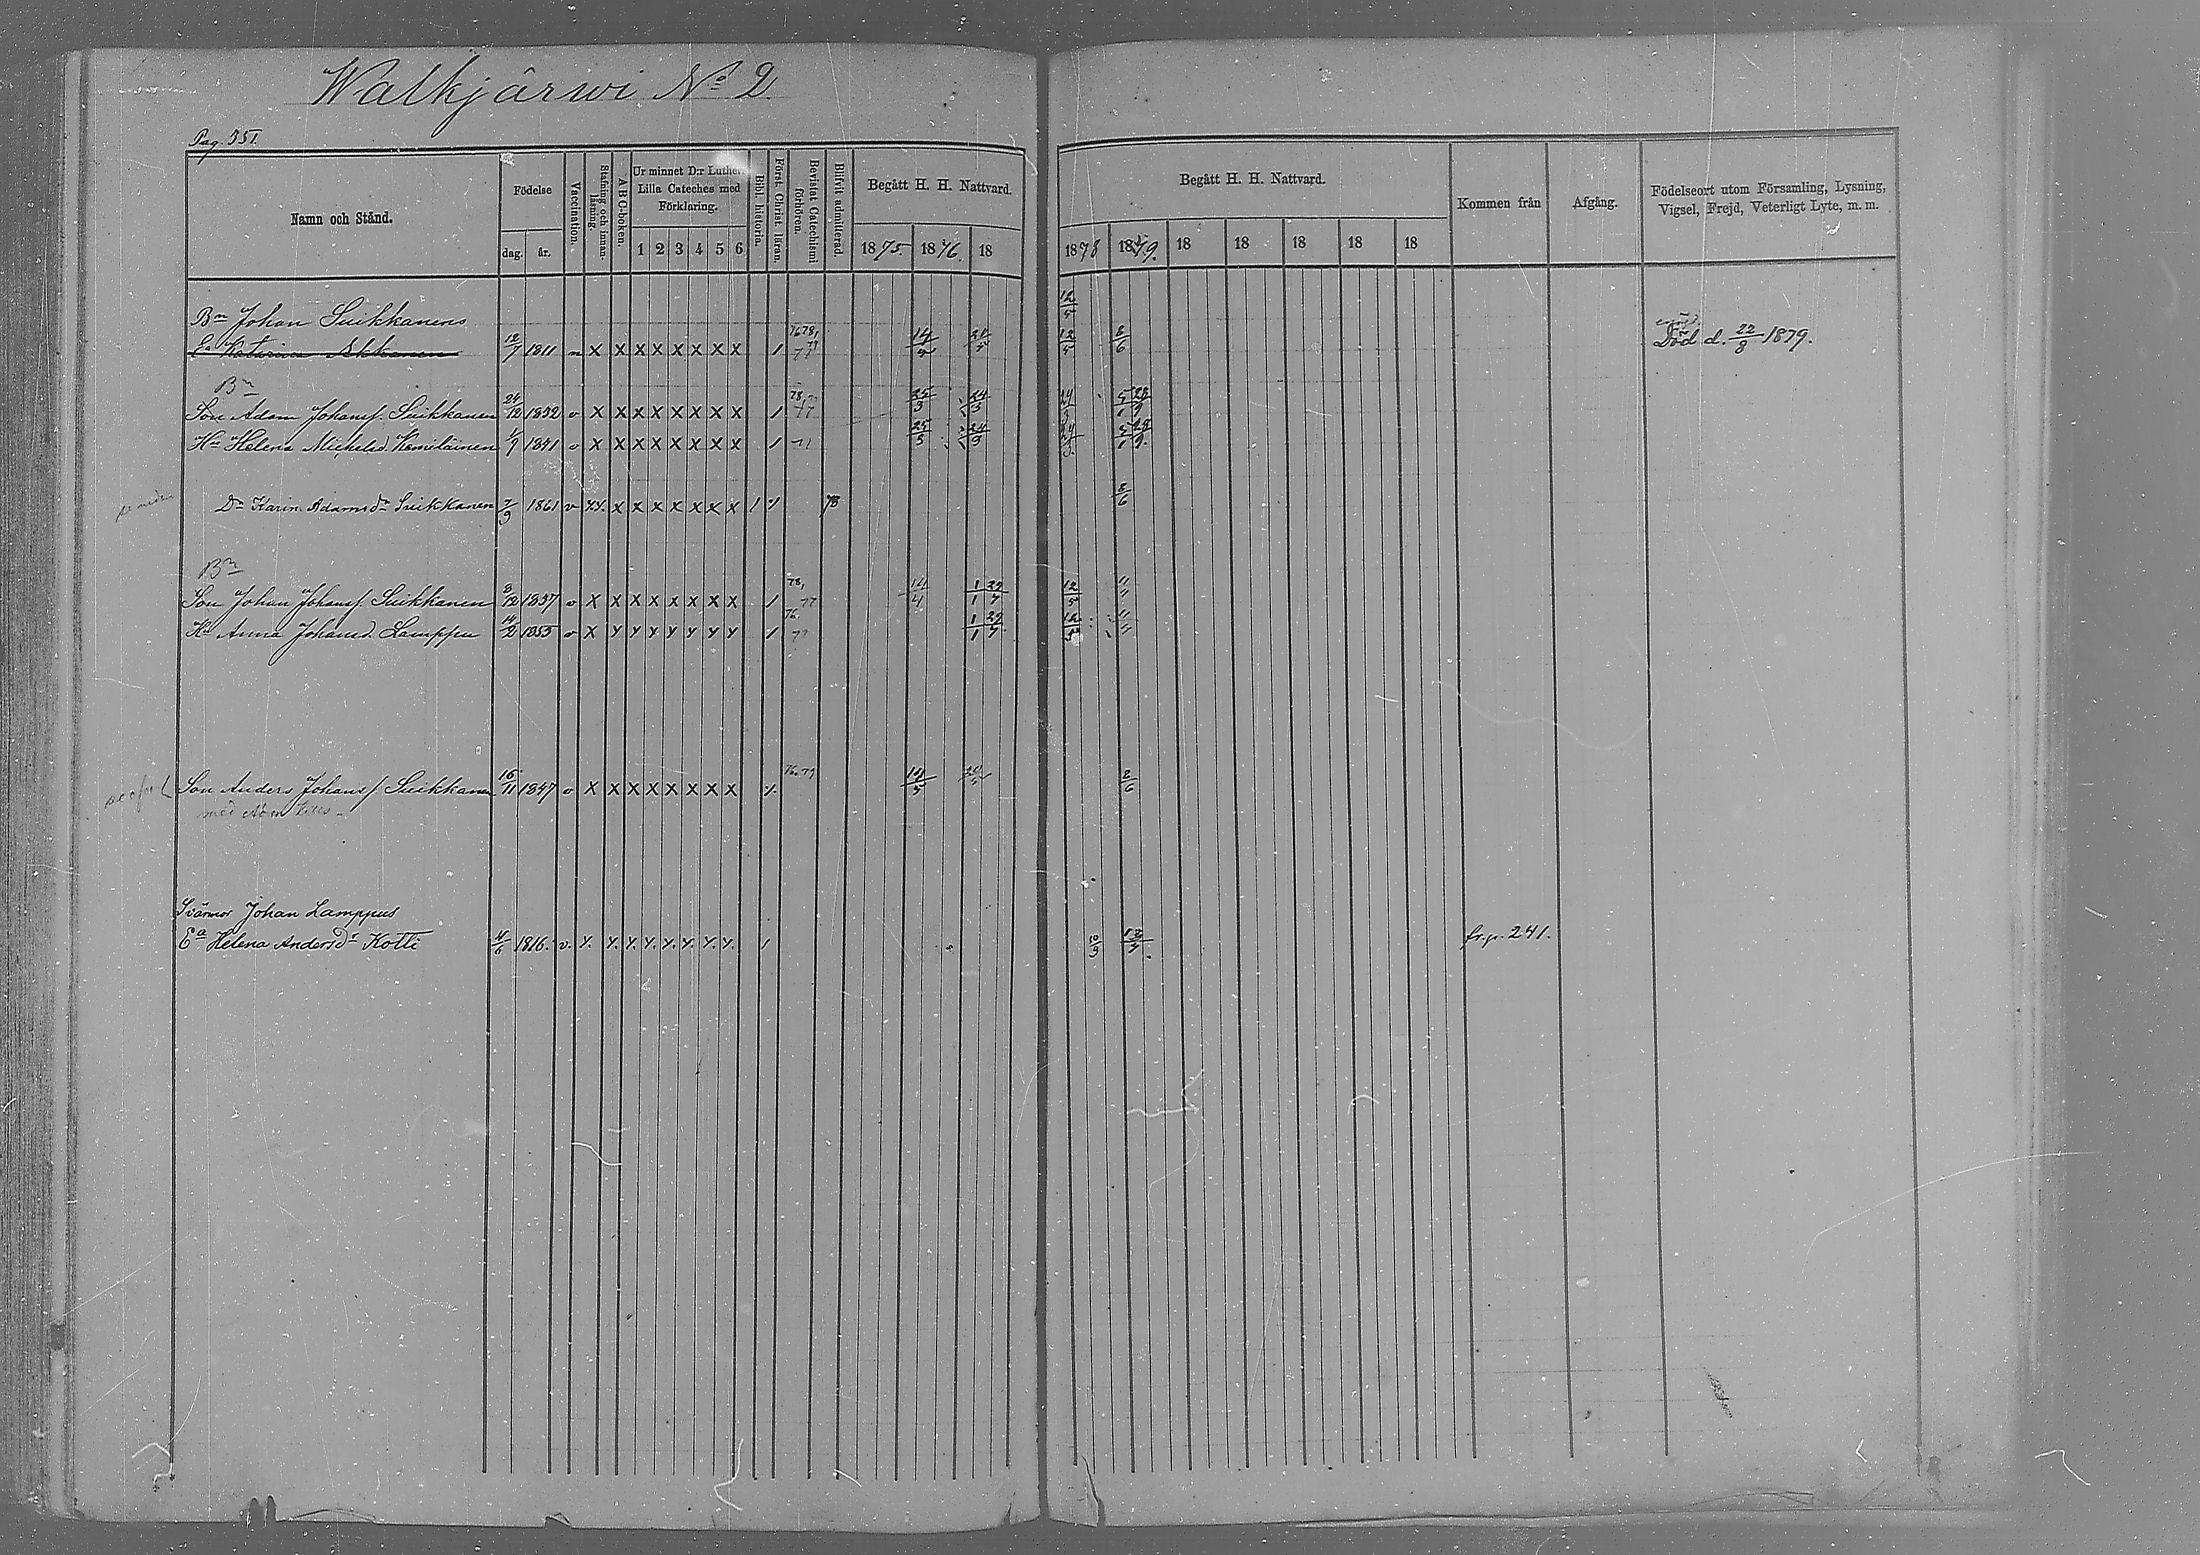 Walkjärwi No 2.
Pag. 351.
Namn och Stånd.
Födelse
dag. år.
Vaccination.
Stafning och innanläsning.
A B C-boken.
Ur minnet D:r Luthers
Lilla Cateches med
Förklaring.
1 2 3 4 5 6
Bibl. historia.
Först. Christ. läran.
Bevistat Catechismi förhören.
Blifvit admitterad.
Begått H. H. Nattvard.
1875. 1876. 18
Begått H. H. Nattvard.
1878 1879. 18 18 18 18 18
Kommen från
Afgång.
Födelseort utom Församling, Lysning,
Vigsel, Frejd, Veterligt Lyte, m. m.
Bn Johan Suikkanens 12/5
Ea Katarina Akkanen 12/7 1811 n X X X X X X X X 1 76 78, 77 79 14/5 12/5 8/6 Död d. 22/8 1879.
Bn
Son Adam Johansf. Suikkanen 24/12 1832 v X X X X X X X X 1 78, 77 25/3 24/3 24/3 5/1 28/9
Hu Helena Michelsd. Kemiläinen 1/9 1841 v X X X X X X X X 1 77 25/3 24/3 24/3 5/1 28/9
Dr Karin Adamsdr Suikkanen 7/3 1861 v X X X X X X X 1 78 8/6
Bn
Son Johan Johansf. Suikkanen 3/12 1837 v X X X X X X X X 1 78, 77 14/4 1/1 29/7 12/5 "
Hu Anna Johansd. Lamppu 14/2 1855 v X Y Y Y Y Y Y Y 1 76. 77 1/1 29/7 12/5 "
Son Anders Johansf. Suikkanen 16/11 1847 v X X X X X X X X 76. 79 14/5 8/6
med
Svärmor Johan Lamppus
Ea Helena Andersdr Kotti 4/6 1816. v. Y. Y. Y. Y. Y. Y. Y. Y. 1 12/7 fr. p. 241.